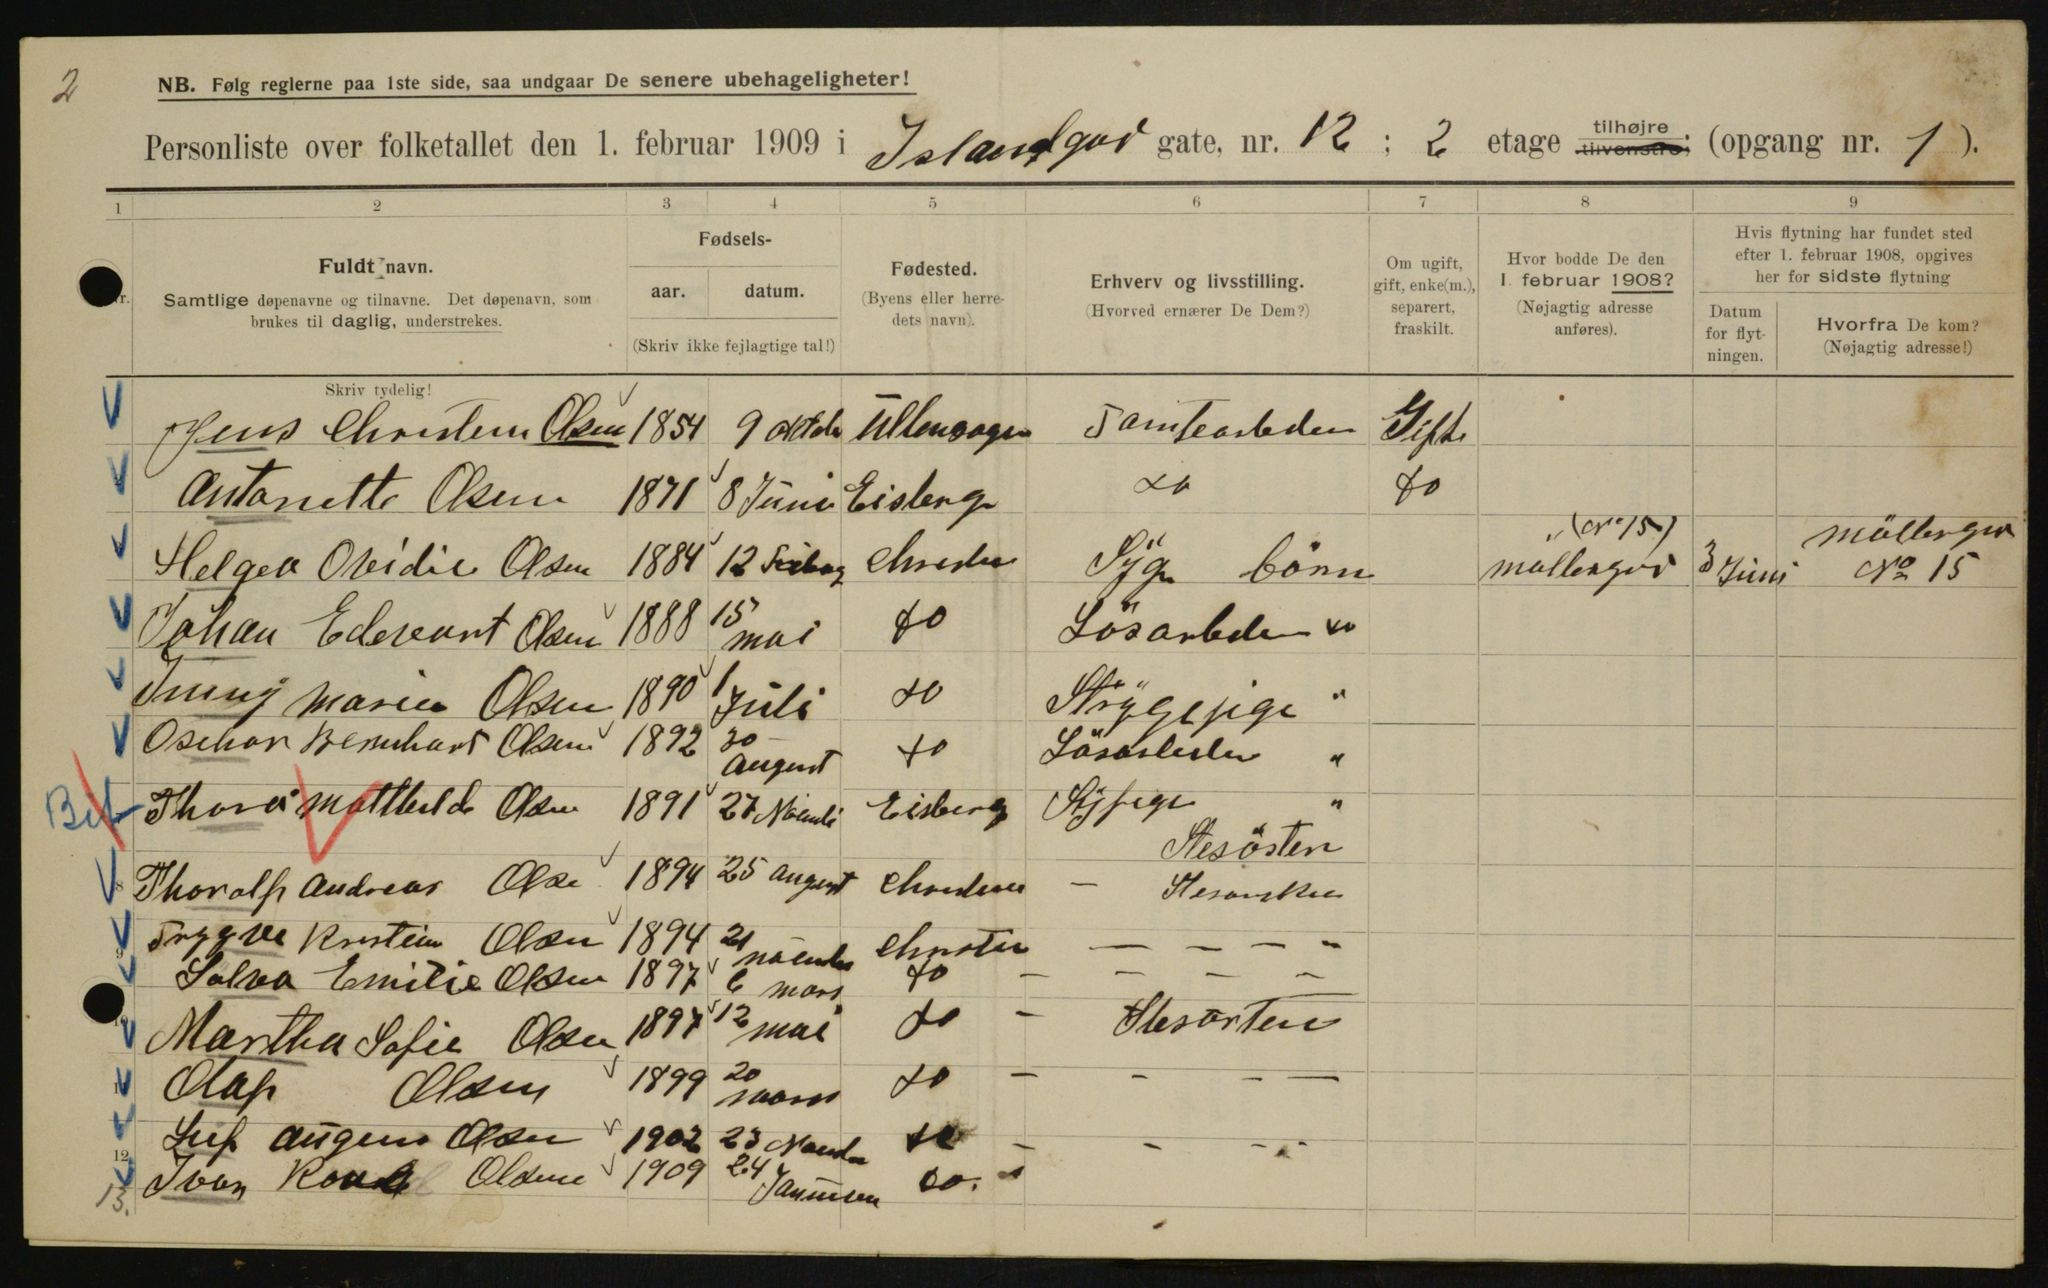 2
NB. Følg reglerne paa 1ste side, saa undgaar De senere ubehageligheter!
Personliste over folketallet den 1. februar 1909 i Islandgad gate, nr. 12 ; 2 etage tilhøjre tilvenstre; (opgang nr. 1 ).
1 2 3 4 5 6 7 8 9
Nr.
Fuldt navn.
Samtlige døpenavne og tilnavne. Det døpenavn, som
brukes til daglig, understrekes.
Skriv tydelig!
Fødsels-
aar. datum.
(Skriv ikke fejlagtige tal!)
Fødested.
(Byens eller herre-
dets navn).
Erhverv og livsstilling.
(Hvorved ernærer De Dem?)
Om ugift,
gift, enke(m.),
separert,
fraskilt.
Hvor bodde De den
1. februar 1908?
(Nøjagtig adresse
anføres).
Hvis flytning har fundet sted
efter 1. februar 1908, opgives
her for sidste flytning
Datum
for flyt-
ningen.
Hvorfra De kom?
(Nøjagtig adresse!)
Jens Christen Olsen 1854 9 Ullensager Tomtearbeder Gift
Antonette Olsen 1871 8 Juni Eisberg do do
Helga Ovidie Olsen 1884 12 Syg börn (No 15) möllergad 3 Juni möllergad No 15
Johan Edevart Olsen 1888 15 mai do Lösarbeder do
marie Olsen 1890 1 Juli do Strygepige "
Oschar Bernhart Olsen 1892 30 August do Lösarbeder "
Thora Mathilde Olsen 1891 27 Eisberg Sypige "
Stesösten
8 Thorolf Andreas Olse 1894 25 August
9 Trygve Kristian Olsen 1894 21 — — — "
Solva Emilie Olsen 1897 6 mars do — — — —
10 Martha Sofie Olsen 1897 12 mai do —
11 Olaf Olsen 1899 20 mars do — — — —
Leif Olsen 1902 23 do — — — "
12 Ivar Olsen 1909 24 do.
13.